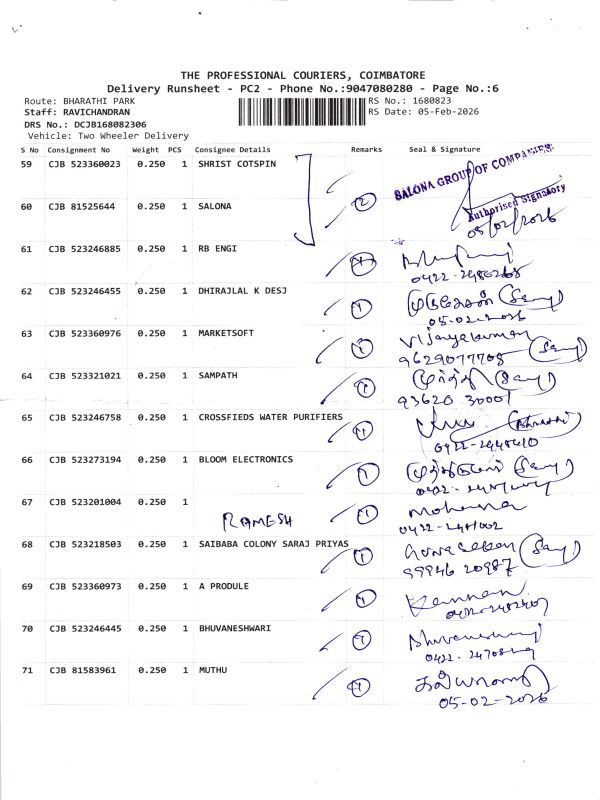 THE PROFESSIONAL COURIERS, COIMBATORE
Delivery Runsheet - PC2 - Phone No.:9047080280 - Page No.:6
Route: BHARATHI PARK RS No.: 1680823
Staff: RAVICHANDRAN RS Date: 05-Feb-2026
DRS No.: DCJB168082306
Vehicle: Two Wheeler Delivery
S No Consignment No Weight PCS Consignee Details Remarks Seal & Signature
59 CJB 523360023 0.250 1 SHRIST COTSPIN SALONA GROUP OF COMPANIES
60 CJB 81525644 0.250 1 SALONA 2 Authorised Signatory
05/02/2026
61 CJB 523246885 0.250 1 RB ENGI
62 CJB 523246455 0.250 1 DHIRAJLAL K DESJ 1
05-02-2026
63 CJB 523360976 0.250 1 MARKETSOFT 1 Vijayakumar
9629077708
64 CJB 523321021 0.250 1 SAMPATH 1
93620 30001
65 CJB 523246758 0.250 1 CROSSFIEDS WATER PURIFIERS 1
66 CJB 523273194 0.250 1 BLOOM ELECTRONICS 1
67 CJB 523201004 0.250 1 RAMESH 1 Mohana
68 CJB 523218503 0.250 1 SAIBABA COLONY SARAJ PRIYAS 1
99946 20987
69 CJB 523360973 0.250 1 A PRODULE 1 Kannan
70 CJB 523246445 0.250 1 BHUVANESHWARI 1
71 CJB 81583961 0.250 1 MUTHU 1
05-02-2026